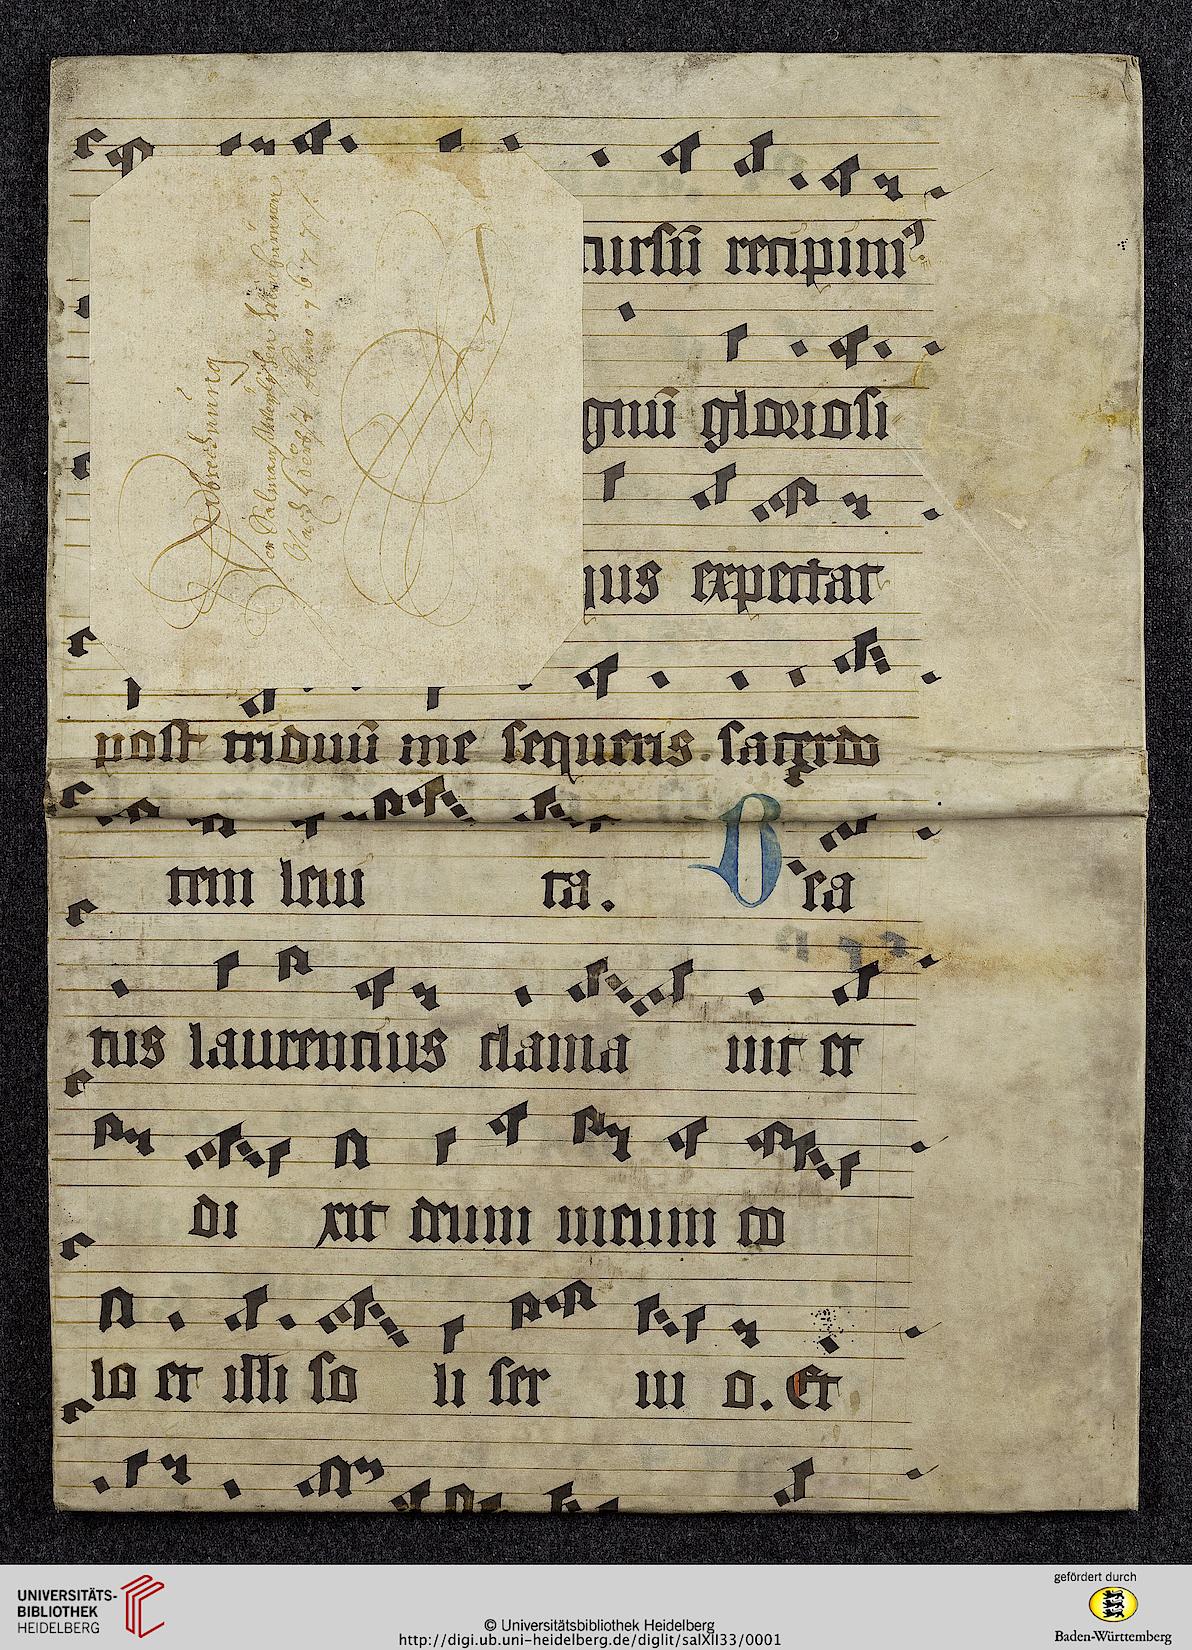 cursū recipim⁹
gnū gloriosi
ius expectat
post triduū me sequeris sacerdo
tem leui ta. Bea
tus laurencius clama uit et
di xit deum meum co
lo et illi so li ser ui o. Et
Abrechnung
der
Anno 1677
UNIVERSITÄTS-
BIBLIOTHEK
HEIDELBERG
© Universitätsbibliothek Heidelberg
http://digi.ub.uni-heidelberg.de/diglit/salXII33/0001
gefördert durch
Baden-Württemberg